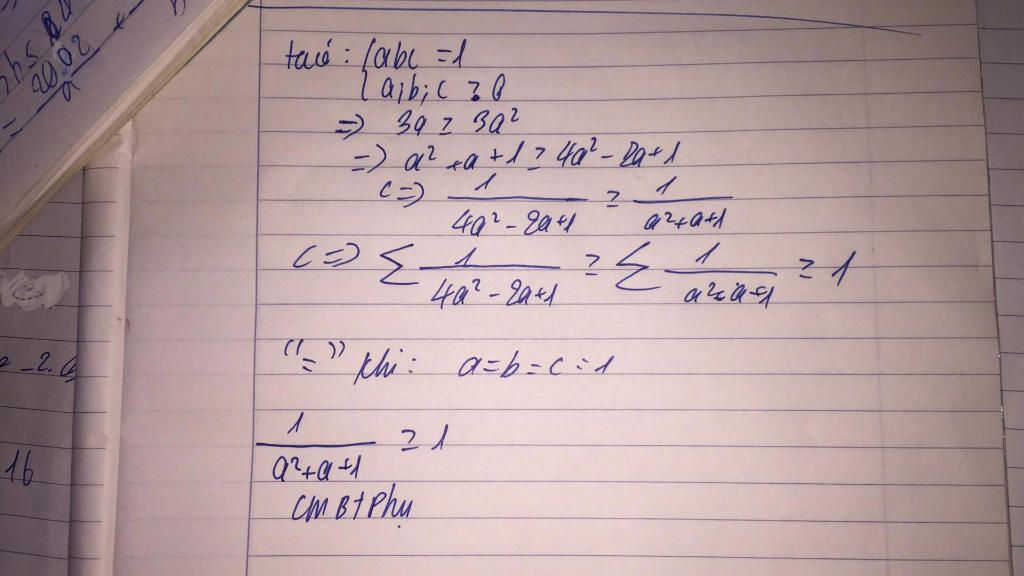 2002
- 2.a
16
ta có : { abc = 1
a;b;c ≥ 0
=> 3a ≥ 3a²
=> a² + a + 1 ≥ 4a² - 2a + 1
<=> 1/(4a² - 2a + 1) ≥ 1/(a² + a + 1)
<=> ∑ 1/(4a² - 2a + 1) ≥ ∑ 1/(a² + a + 1) ≥ 1
"=" khi : a = b = c = 1
1/(a² + a + 1) ≥ 1
CM BĐT Phụ